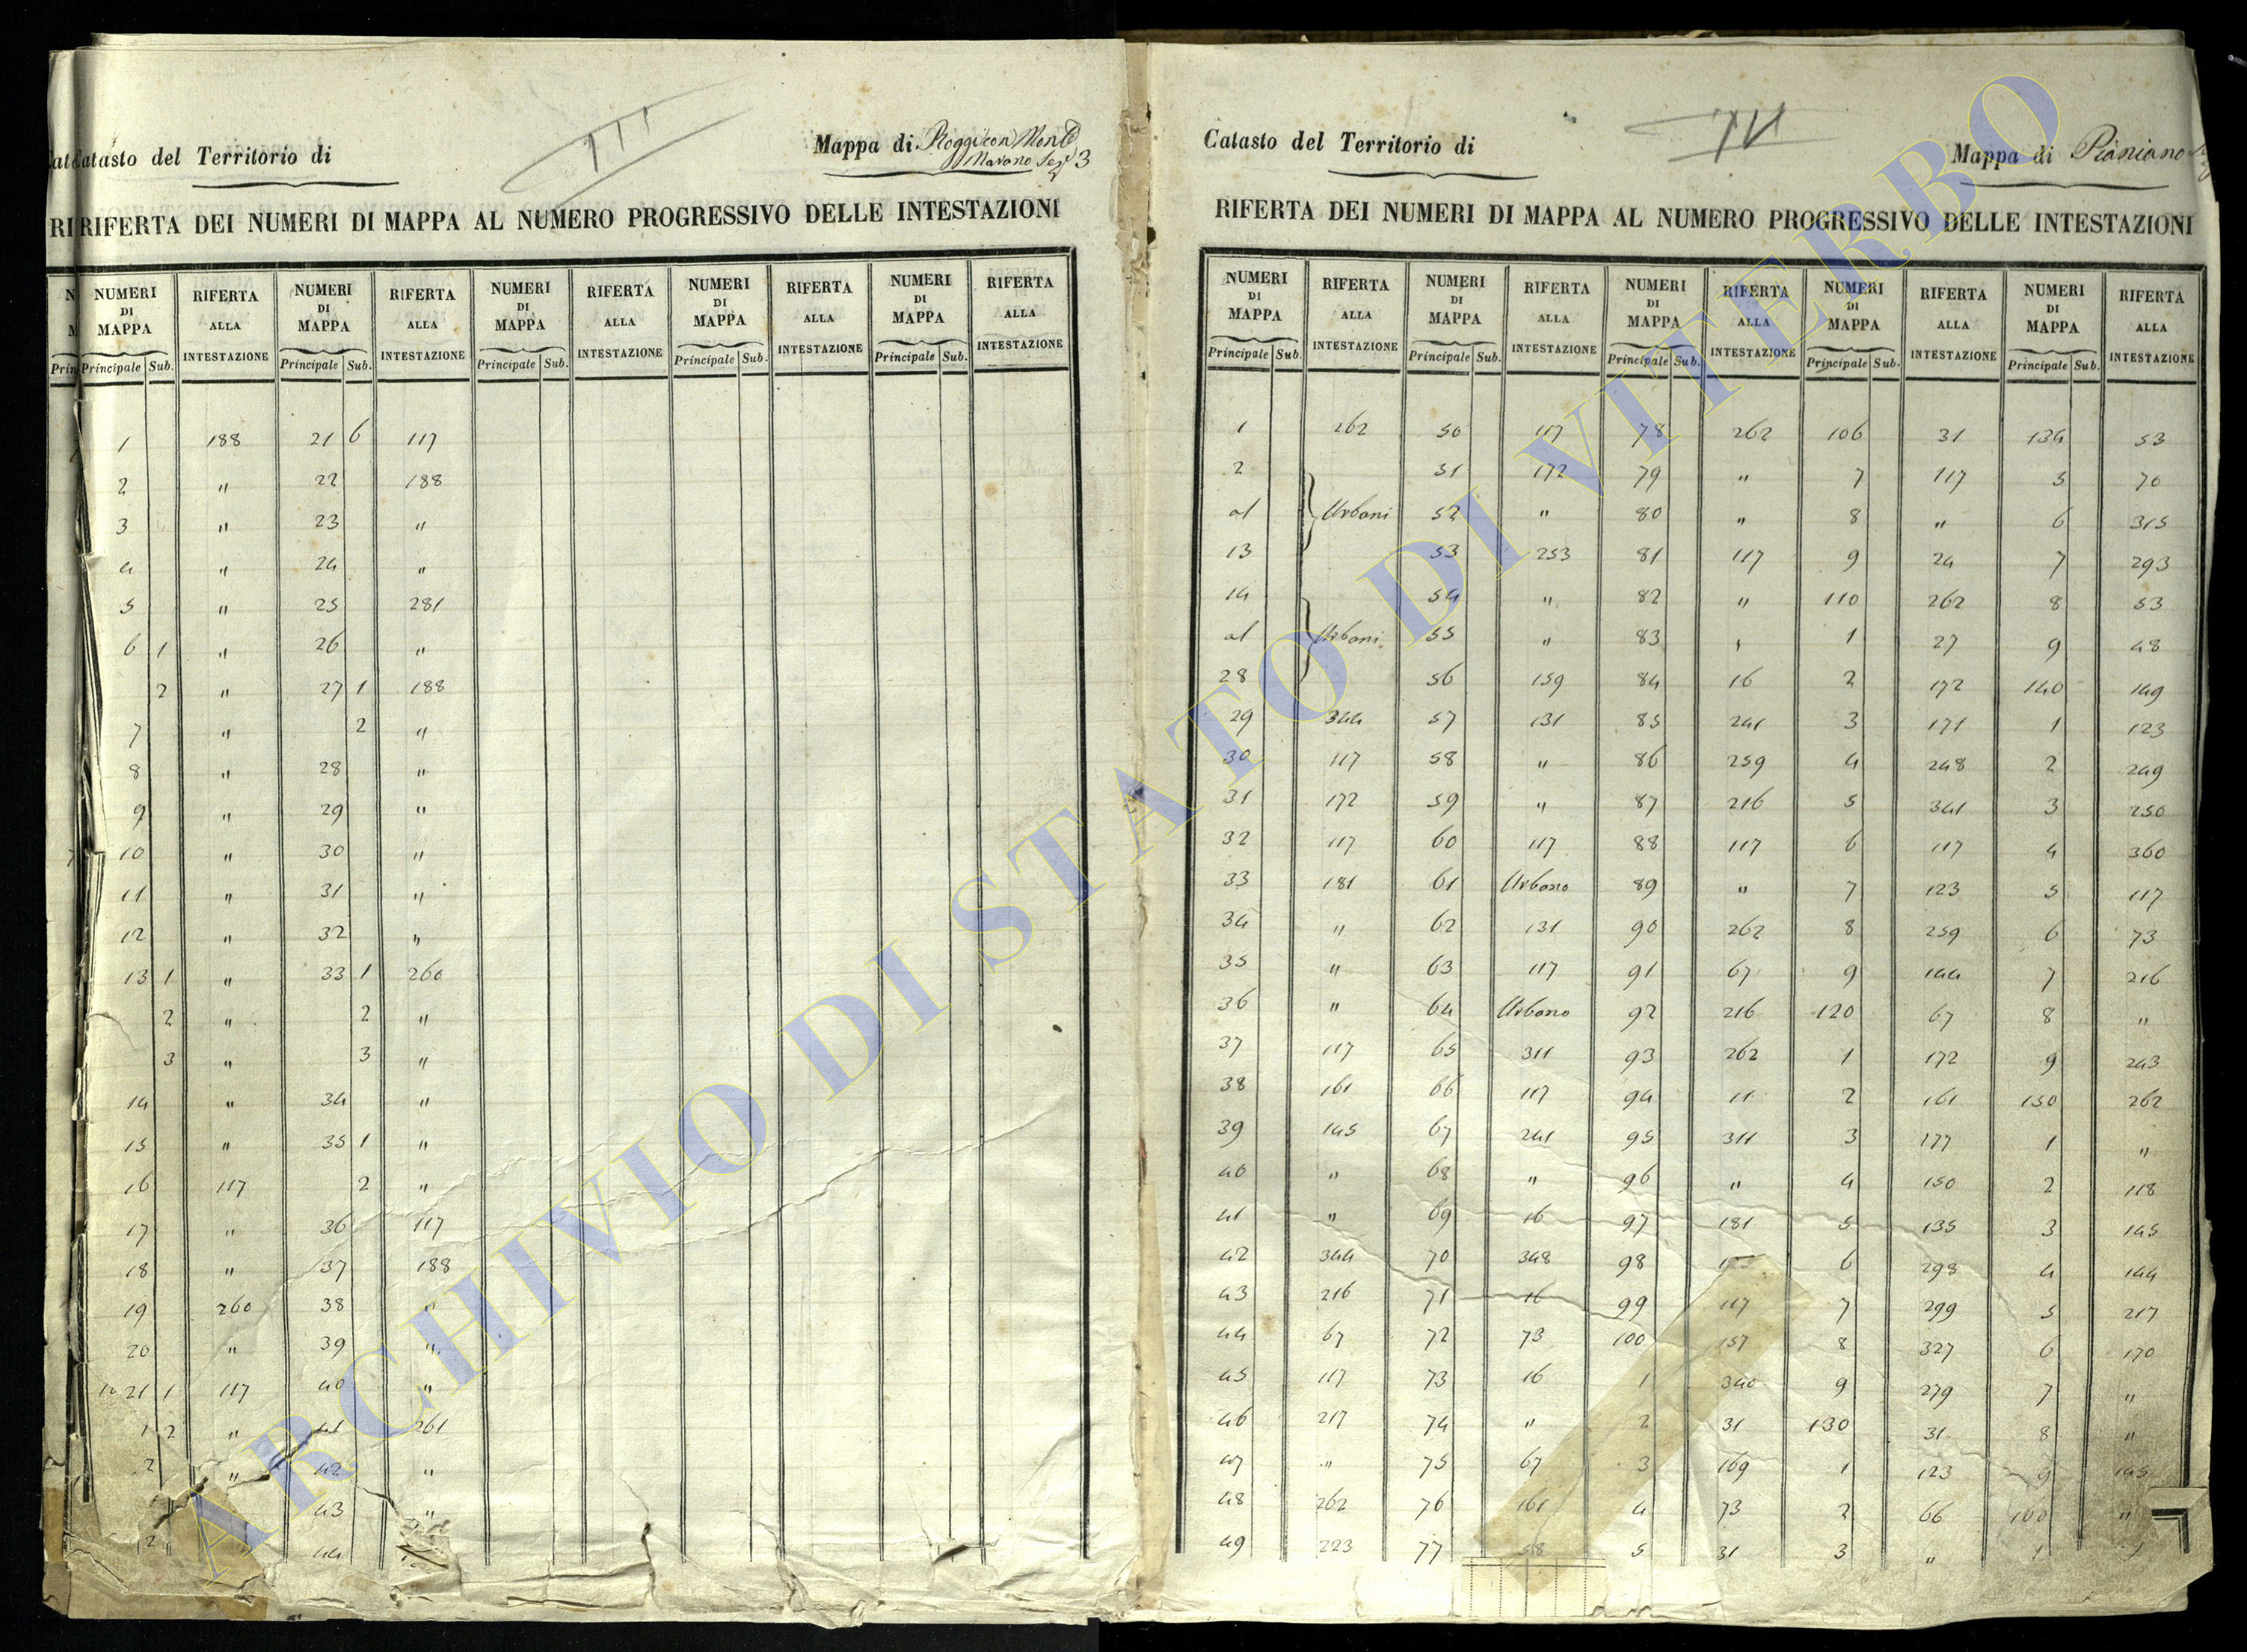 III
Catasto del Territorio di
Mappa di Poggio con Monte
Marano Sez. 3
RIFERTA DEI NUMERI DI MAPPA AL NUMERO PROGRESSIVO DELLE INTESTAZIONI
NUMERI DI MAPPA RIFERTA ALLA INTESTAZIONE NUMERI DI MAPPA RIFERTA ALLA INTESTAZIONE NUMERI DI MAPPA RIFERTA ALLA INTESTAZIONE NUMERI DI MAPPA RIFERTA ALLA INTESTAZIONE NUMERI DI MAPPA RIFERTA ALLA INTESTAZIONE
Principale Sub. Principale Sub. Principale Sub. Principale Sub. Principale Sub.
1 188 21 6 117
2 " 22 188
3 " 23 "
4 " 24 "
5 " 25 281
6 1 " 26 "
2 " 27 1 188
7 " 2 "
8 " 28 "
9 " 29 "
10 " 30 "
11 " 31 "
12 " 32 "
13 1 " 33 1 260
2 " 2 "
3 " 3 "
14 " 34 "
15 " 35 1 "
16 117 2 "
17 " 36 117
18 " 37 188
19 260 38 "
20 " 39 "
21 1 117 40 "
2 " 41 261
" 42 "
43 "
2 " 44
IV
Catasto del Territorio di
Mappa di Pianiano
RIFERTA DEI NUMERI DI MAPPA AL NUMERO PROGRESSIVO DELLE INTESTAZIONI
NUMERI DI MAPPA RIFERTA ALLA INTESTAZIONE NUMERI DI MAPPA RIFERTA ALLA INTESTAZIONE NUMERI DI MAPPA RIFERTA ALLA INTESTAZIONE NUMERI DI MAPPA RIFERTA ALLA INTESTAZIONE NUMERI DI MAPPA RIFERTA ALLA INTESTAZIONE
Principale Sub. Principale Sub. Principale Sub. Principale Sub. Principale Sub.
1 262 50 117 78 262 106 31 134 53
2 51 172 79 " 7 117 5 70
al Urbani 52 " 80 " 8 " 6 315
13 53 253 81 117 9 24 7 293
14 54 " 82 " 110 262 8 53
al Urbani 55 " 83 " 1 27 9 48
28 56 159 84 16 2 172 140 149
29 344 57 131 85 241 3 171 1 123
30 117 58 " 86 259 4 248 2 249
31 172 59 " 87 216 5 341 3 250
32 117 60 117 88 117 6 117 4 360
33 181 61 Urbano 89 " 7 123 5 117
34 " 62 131 90 262 8 259 6 73
35 " 63 117 91 67 9 144 7 216
36 " 64 Urbano 92 216 120 67 8 "
37 117 65 311 93 262 1 172 9 243
38 161 66 117 94 11 2 161 150 262
39 145 67 241 95 311 3 177 1 "
40 " 68 " 96 " 4 150 2 118
41 " 69 16 97 181 5 135 3 145
42 344 70 348 98 6 298 4 144
43 216 71 16 99 117 7 299 5 217
44 67 72 73 100 157 8 327 6 170
45 117 73 16 1 340 9 279 7 "
46 217 74 " 2 31 130 31 8 "
47 " 75 67 3 169 1 123 9 145
48 262 76 161 4 73 2 66 160 "
49 223 77 58 5 31 3 " 1
ARCHIVIO DI STATO DI VITERBO